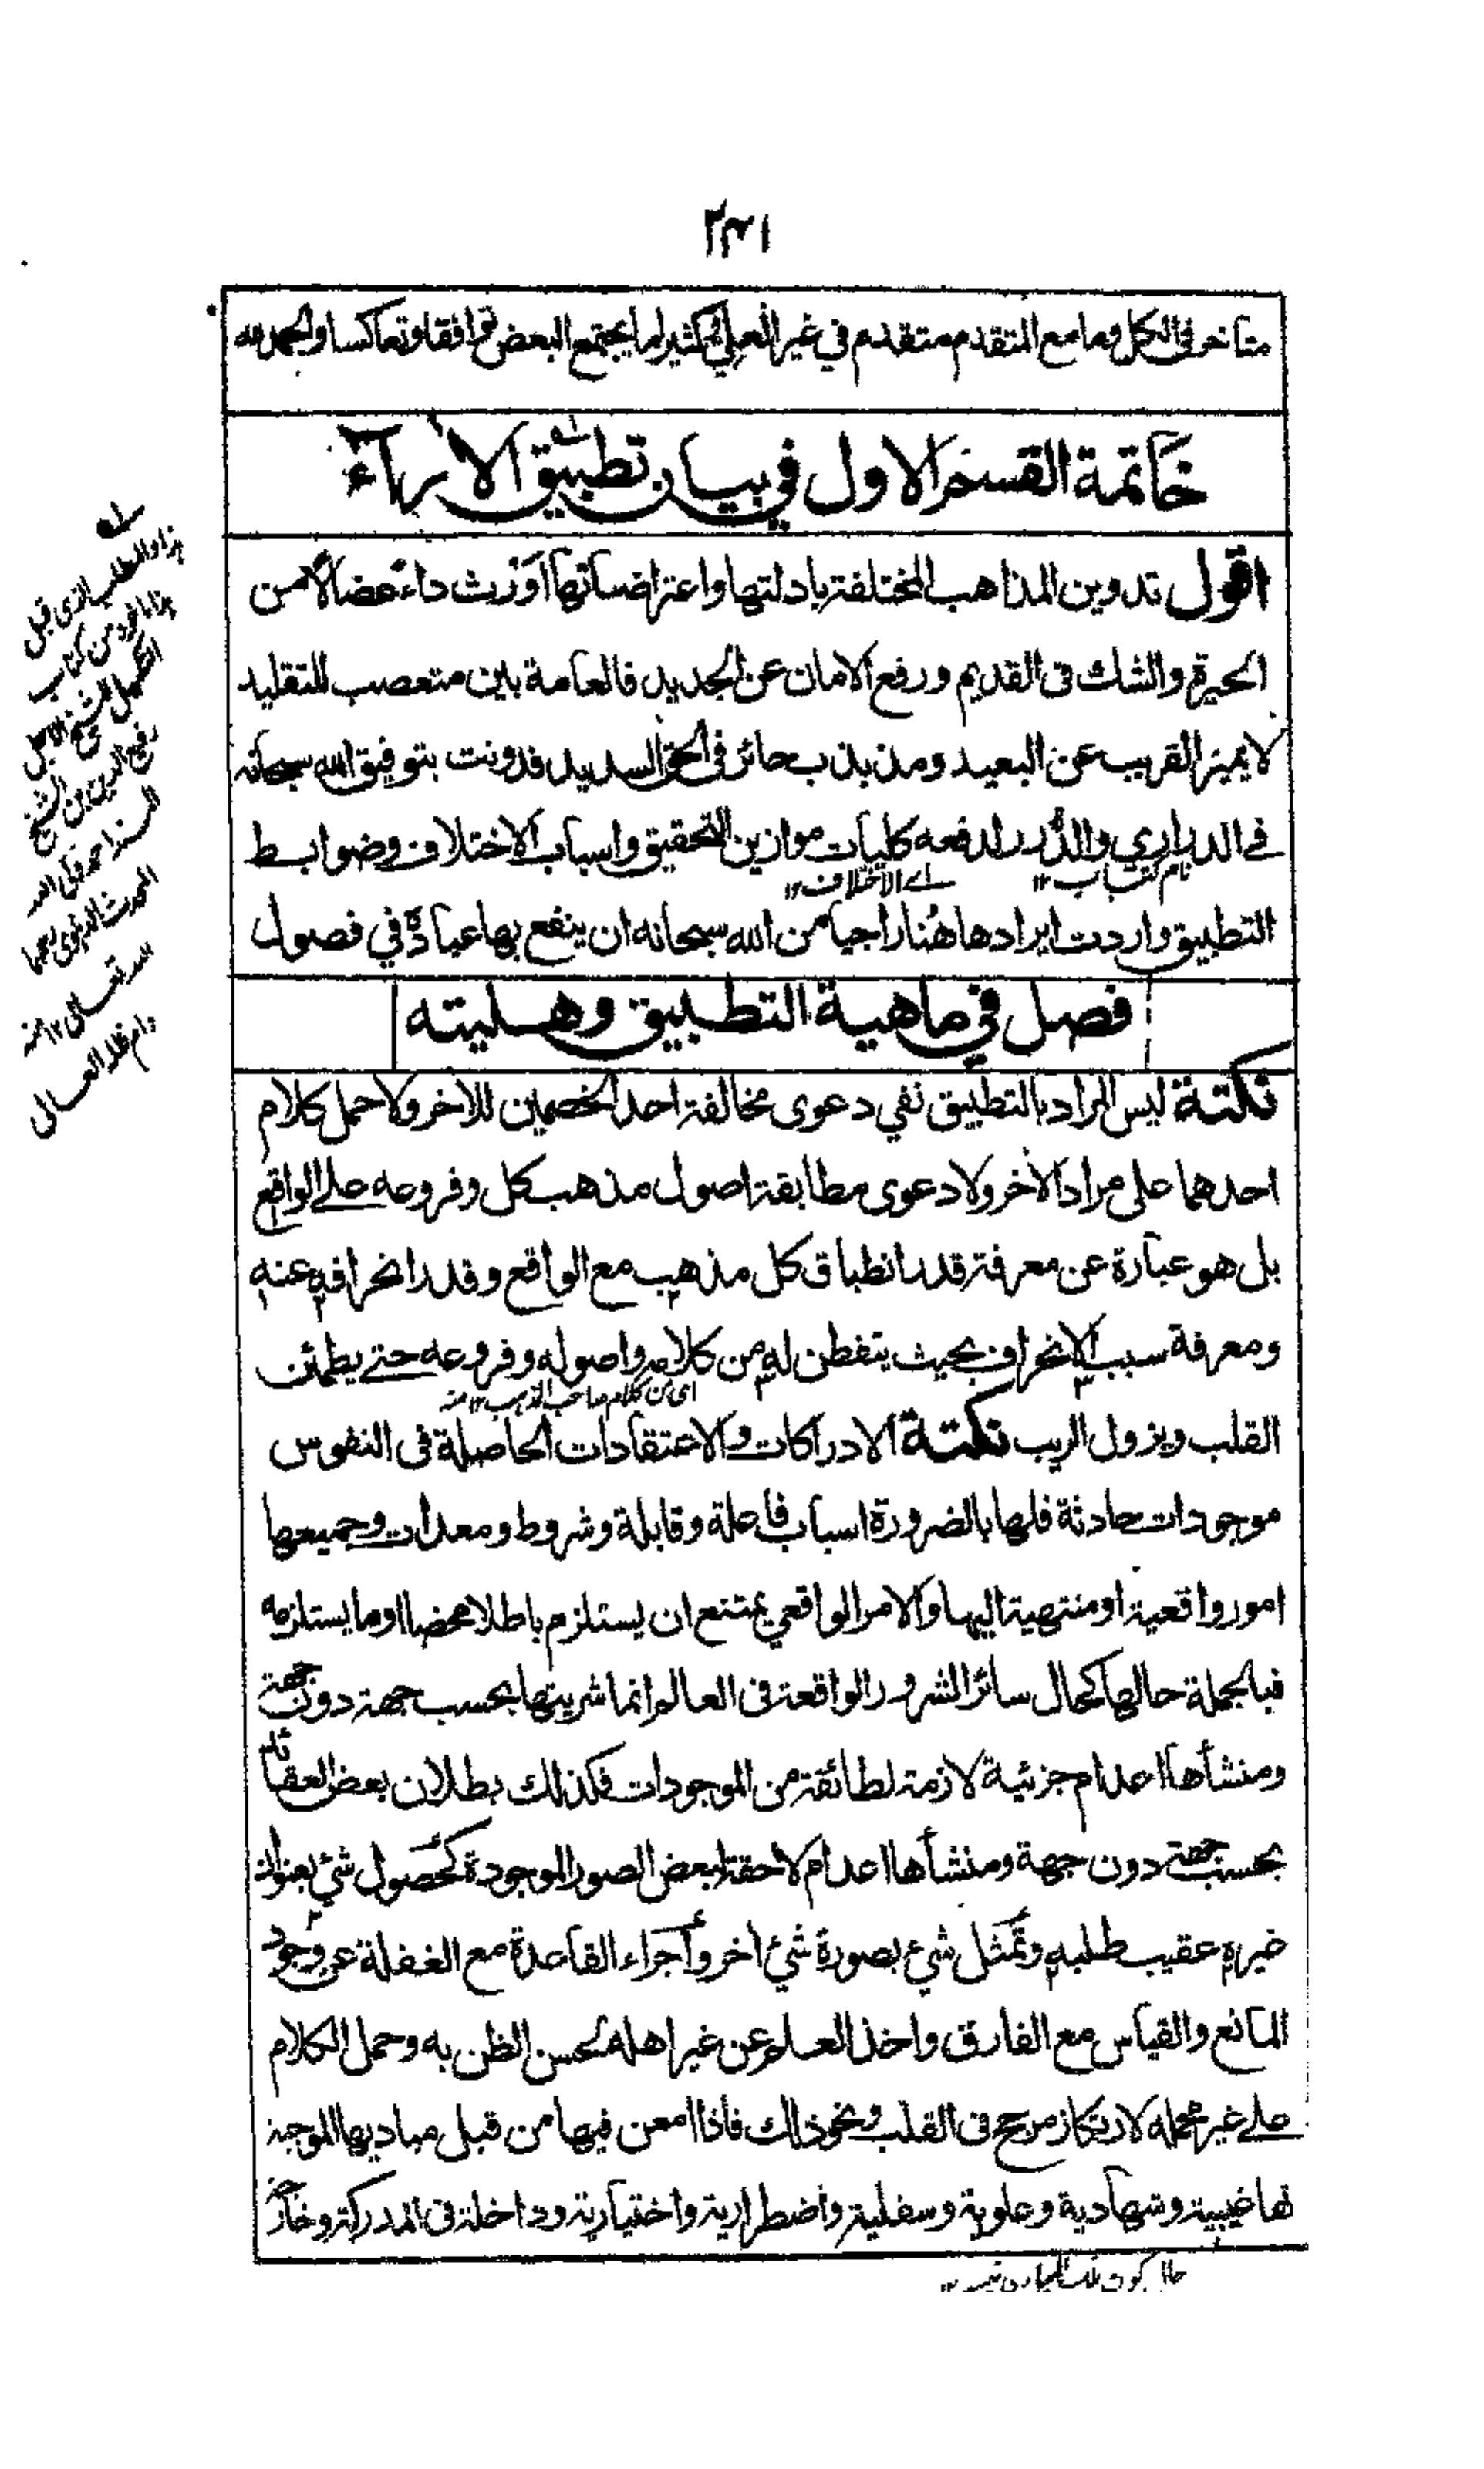 ٢٣١
متأخر في الكل وما مع المتقدم متقدم في غير العلي وكثيرا ما يجتمع البعض توافقا وتعاكسا والحمد لله
خاتمة القسم الاول في بيان تطبيق الأراء
اقول تدوين المذاهب المختلفة بادلتها واعتراضاتها اورث داء عضالا من
الحيرة والشك في القديم ورفع الامان عن الجديد فالعامة بين متعصب للتقليد
لا يميز القريب عن البعيد ومذبذب حائر في الحق السديد فدونت بتوفيق الله سبحانه
في الدراري والدرر لدفعه كليات موازين التحقيق واسباب الاختلاف وضوابط
نام كتاب ١٢
اے الاختلاف ١٢
التطبيق واردت ايرادها هنا راجيا من الله سبحانه ان ينفع بها عباده في فصول
فصل في ماهية التطبيق وهليته
نكتة ليس المراد بالتطبيق نفي دعوى مخالفة احد الخصمين للأخر ولا حمل كلام
احدهما على مراد الأخر ولا دعوى مطابقة اصول مذهب كل وفروعه على الواقع
بل هو عبارة عن معرفة قدر انطباق كل مذهب مع الواقع وقدر انحرافه عنه
ومعرفة سبب الانحراف بحيث يتفطن له من كلامه واصوله وفروعه حتى يطمئن
اى من كلام صاحب المذهب ١٢ منه
القلب ويزول الريب نكتة الادراكات والاعتقادات الحاصلة في النفوس
موجودات حادثة فلها بالضرورة اسباب فاعلة وقابلة وشروط ومعدات وجميعها
امور واقعية او منتهية اليها والامر الواقعي يمتنع ان يستلزم باطلا محضا او ما يستلزمه
فبالجملة حالها كحال سائر الشرور الواقعة في العالم انما شريتها بحسب جهة دون جهة
ومنشأها اعدام جزئية لازمة لطائفة من الموجودات فكذلك بطلان بعض العقائد
بحسب جهة دون جهة ومنشأها اعدام لاحقة لبعض الصور الموجودة كحصول شئ بعنوان
غيره عقيب طلبه وتمثل شئ بصورة شئ أخر واجراء القاعدة مع الغفلة عن وجود
المانع والقياس مع الفارق واخذ العلم عن غير اهله لحسن الظن به وحمل الكلام
على غير محمله لارتكاز مرجح في القلب ونحو ذلك فاذا امعن فيها من قبل مباديها الموجبة
لها غيبية وشهادية وعلوية وسفلية واضطرارية واختيارية وداخلة في المدركة وخارجة
هذا المطلب الذى قبل
هذا ماخوذ من كتاب
التكميل للشيخ الاجل
رفيع الدين بن الشيخ
المحدث الدهلوى رحمهما
الله تعالى ١٢ منه
دام ظله العالى